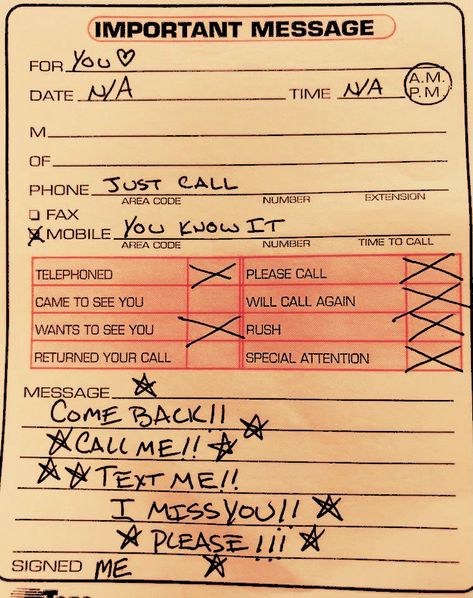 IMPORTANT MESSAGE
FOR YOU
DATE N/A TIME N/A A.M. P.M.
M
OF
PHONE JUST CALL
AREA CODE NUMBER EXTENSION
FAX
MOBILE YOU KNOW IT
AREA CODE NUMBER TIME TO CALL
TELEPHONED PLEASE CALL
CAME TO SEE YOU WILL CALL AGAIN
WANTS TO SEE YOU RUSH
RETURNED YOUR CALL SPECIAL ATTENTION
MESSAGE
COME BACK!!
CALL ME!!
TEXT ME!!
I MISS YOU!!
PLEASE!!!
SIGNED ME